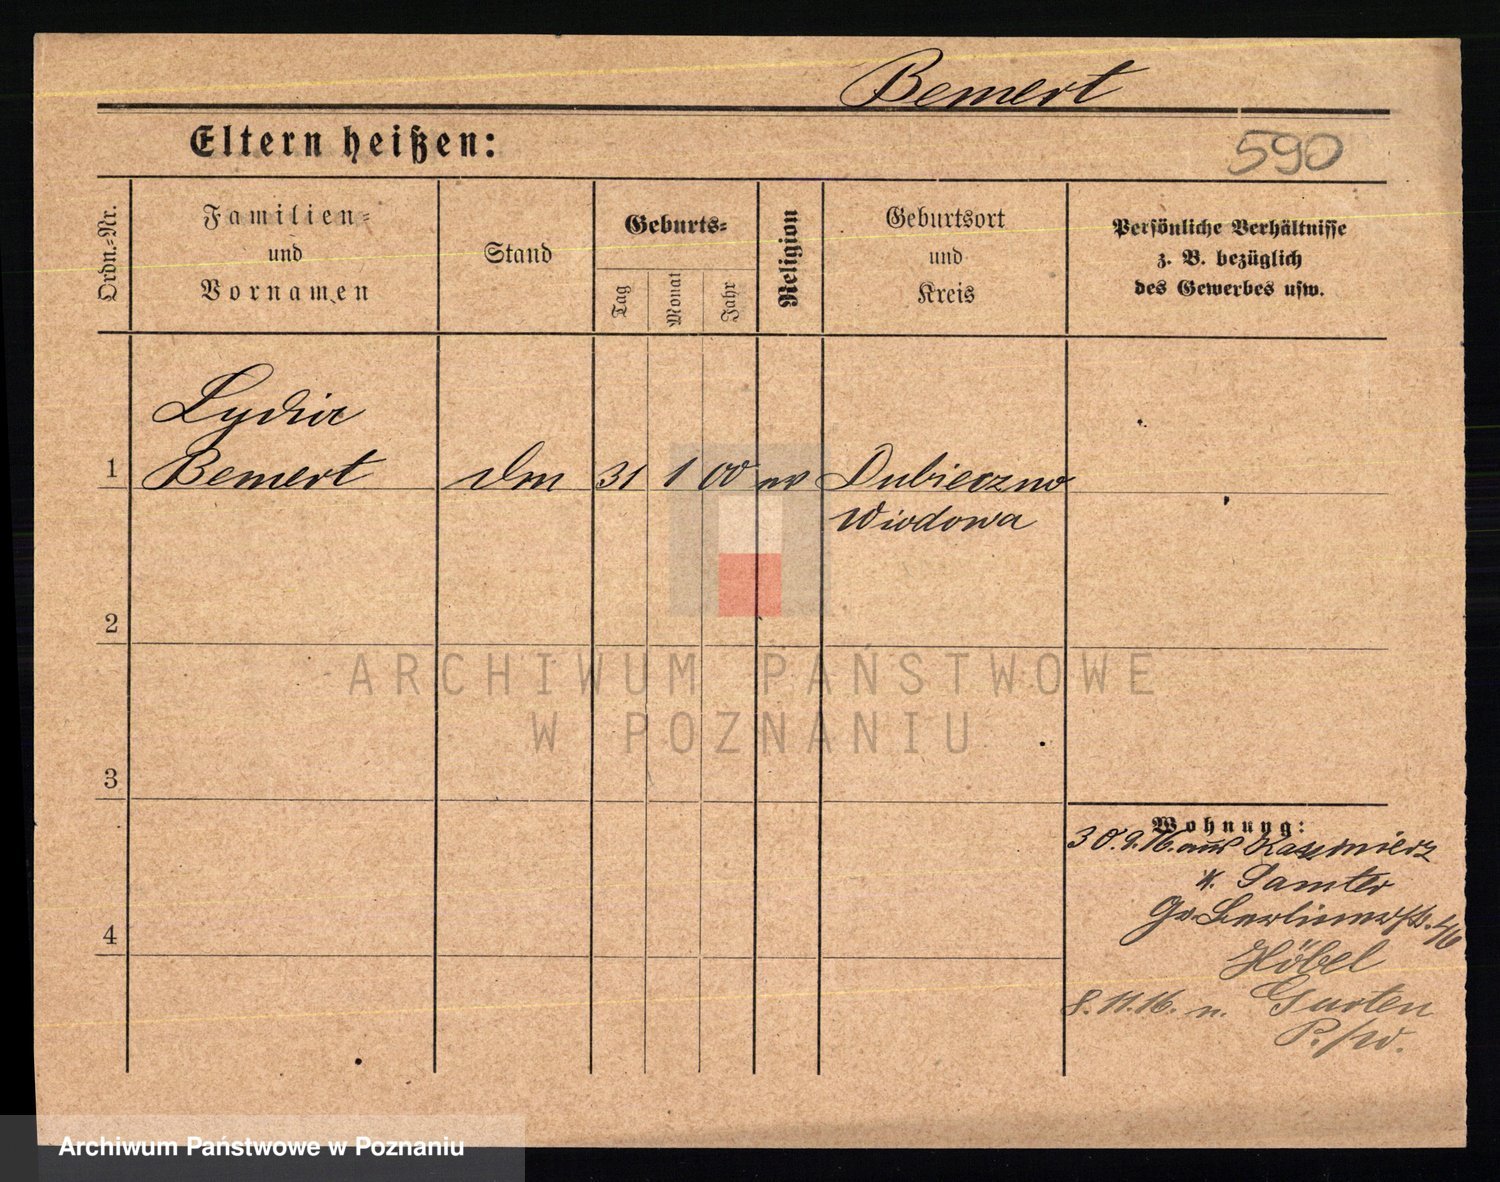 Bemert
Eltern heißen:
590
Ordn.-Nr.
Familien-
und
Vornamen
Stand
Geburts-
Tag
Monat
Jahr
Religion
Geburtsort
und
Kreis
Persönliche Verhältnisse
z. B. bezüglich
des Gewerbes usw.
Lydia
1 Bemert 31 1 00 ev Dubieczno
Wiodowa
2
3
4
Wohnung:
30.9.16. aus Kazmierz
K. Samter
Gr. Berlinerstr.
Höbel
8.11.16. n. Gurten
ARCHIWUM PAŃSTWOWE
W POZNANIU
Archiwum Państwowe w Poznaniu